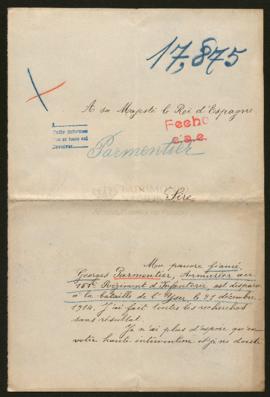 17,875
A sa Majesté le Roi d'Espagne
Fecho
Parmentier
Sire,
Mon pauvre fiancé
Georges Parmentier, Armurier au
151e Régiment d'Infanterie, est disparu
à la bataille de l'Yser le 21 décembre
1914. J'ai fait toutes les recherches
sans résultat.
Je n'ai plus d'espoir qu'en
votre haute intervention et je ne doute